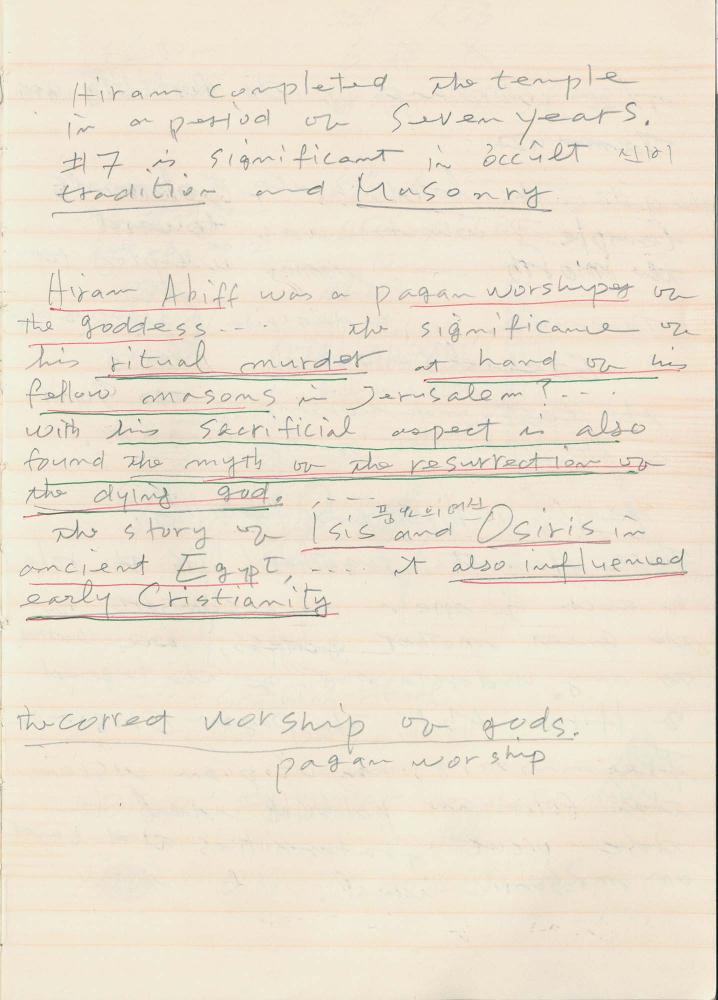 Hiram completed the temple
in a period of seven years.
#7 is significant in occult 신비
tradition and Masonry
Hiram Abiff was a pagan worshiper of
the goddess.... the significance of
his ritual murder at hand of his
fellow masons in Jerusalem?....
with his sacrificial aspect is also
found the myth of the resurrection of
the dying god.
풍요의 여신
The story of Isis and Osiris in
ancient Egypt, .... it also influenced
early Cristianity
the correct worship of gods.
pagan worship